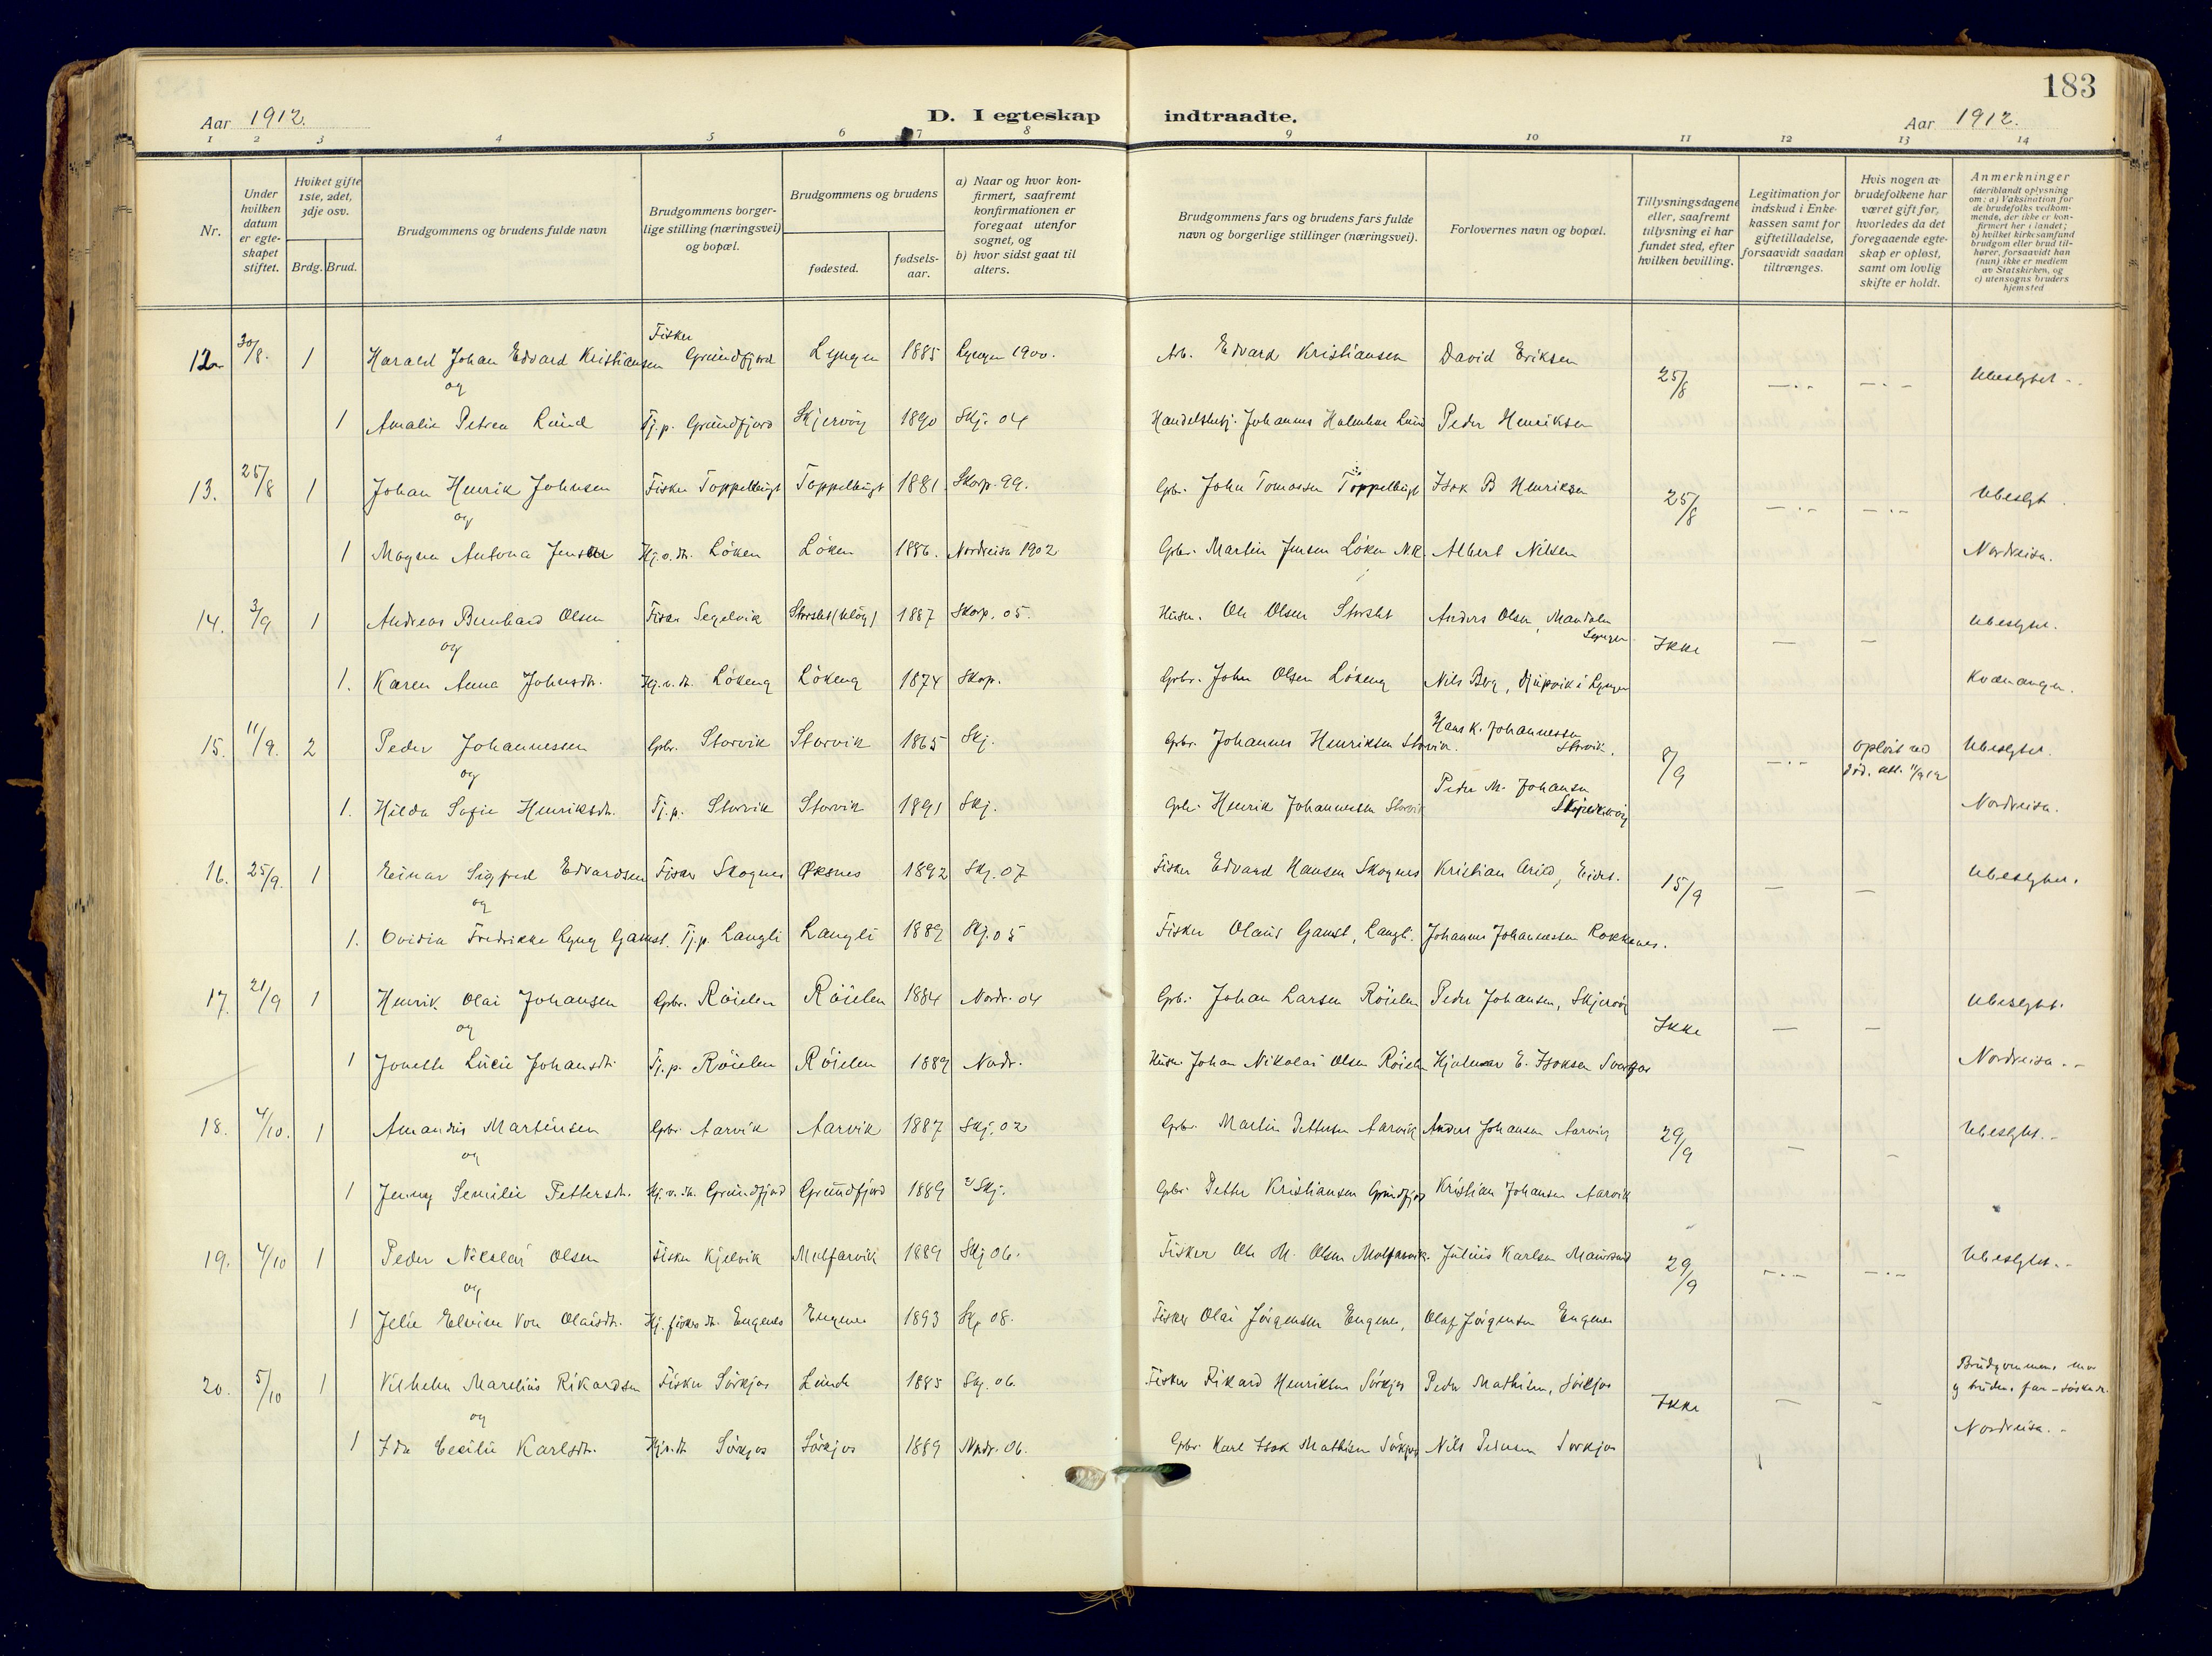 183
Aar 1912.
D. I egteskap indtraadte.
Aar 1912.
1 2 3 4 5 6 7 8 9 10 11 12 13 14
Nr.
Under hvilken datum er egteskapet stiftet.
Hviket gifte 1ste, 2det, 3dje osv.
Brdg. Brud.
Brudgommens og brudens fulde navn
Brudgommens borgerlige stilling (næringsvei) og bopæl.
Brudgommens og brudens
fødested.
fødselsaar.
a) Naar og hvor konfirmert, saafremt konfirmationen er foregaat utenfor sognet, og
b) hvor sidst gaat til alters.
Brudgommens fars og brudens fars fulde navn og borgerlige stillinger (næringsvei).
Forlovernes navn og bopæl.
Tillysningsdagene eller, saafremt tillysning ei har fundet sted, efter hvilken bevilling.
Legitimation for indskud i Enkekassen samt for giftetilladelse, forsaavidt saadan tiltrænges.
Hvis nogen av brudefolkene har været gift før, hvorledes da det foregaaende egteskap er opløst, samt om lovlig skifte er holdt.
Anmerkninger (deriblandt oplysning om: a) Vaksination for de brudefolks vedkommende, der ikke er konfirmert her i landet; b) hvilket kirkesamfund brudgom eller brud tilhører, forsaavidt han (hun) ikke er medlem av Statskirken, og c) utensogns bruders hjemsted
12. 30/8. 1 Harald Johan Edvard Kristiansen Fisker Grundfjord Lyngen 1885 Lyngen 1900. Arb. Edvard Kristiansen David Eriksen 25/8 —.– —.– Ubeslgtet --
og
1 Amalie Petrea Lund Tj.p. Grundfjord Skjervöy 1890 Skj. 04 Johannes Lund Peder Henriksen
13. 25/8 1 Johan Henrik Johnsen Fisker Toppelbugt Toppelbugt 1881 Skorp. 99. Gbr. John Tomassen Toppelbugt Isak B Henriksen 25/8 —.– —.– Ubeslgt.
og
1 Magna Antona Jensen Hj.v.dt. Löken Löken 1886. Nordreisa 1902 Gbr. Martin Jensen Löken Albert Nilsen Nordreisa.
14. 3/9 1 Andreas Bernhard Olsen Fisker Segelvik Storslet 1887 Skorp. 05. Husm. Ole Olsen Storslet Anders Olsen, Mandalen Lyngen Ikke — — Ubeslgtet.
og
1. Karen Anna Johnsdt. Hj.v.dt. Lökeng Lökeng 1874 Skorp. Grbr. John Olsen Lökeng Nils Berg, Djupvik i Lyngen Kvænangen.
15. 11/9. 2 Peder Johannessen Gbr. Storvik Storvik 1865 Skj. Gbr. Johannes Henriksen Storvik. Hans K. Johannessen Storvik. 8/9 —.– Oplöst ved död. att. 11/9 12 Ubeslgtet.
og
1. Hilda Sofie Henriksdt. Tj.p. Storvik Storvik 1891 Skj. Gbr. Henrik Johannessen Storvik Peder M. Johansen Nordreisa.
16. 25/9. 1 Einar Sigfred Edvardsen Fisker Skognes Øksnes 1892 Skj. 07 Fisker Edvard Hansen Skognes Kristian 15/9 — — Ubeslgtet.
og
1. Ovidia Fredrikke Lyng Gamst. Tj.p. Langli Langli 1889 Skj. 05 Fisker Olaus Gamst, Langli. Johannes Johannessen
17. 21/9 1 Henrik Olai Johansen Gbr. Röielen Röielen 1884 Nordr. 04 Gbr. Johan Larsen Röielen Peder Johansen, Skjervöy Ikke — — Ubeslgtet.
og
1 Jonette Lucie Johansdt. Tj.p. Röielen Röielen 1889 Nordr. Husm. Johan Nikolai Olsen Röielen Hjalmar E. Isaksen Nordreisa.--
18. 4/10. 1 Amandus Martinsen Gbr. Aarvik Aarvik 1887 Skj. 02 Gbr. Martin Pettersen Aarvik Anders Johansen Aarvik 29/9 – – Ubeslgtet.-
og
1 Jenny Semilie Pettersdt. Hj.v.dt. Grundfjord Grundfjord 1889 Skj. Gbr. Petter Kristiansen Grundfjord Kristian Johansen Aarvik
19. 4/10 1 Peder Nikolai Olsen Fisker Kjelvik Molfarvik 1889 Skj 06. Fisker Ole M. Olsen Molfarvik. Julius Karlsen Maursund 29/9 –.– –.– Ubeslgtet.-
og
1 Olaisdt. Eugenes Eugenes 1893 Skj 08. Fisker Olai Jörgensen Eugenes, Olaf Jörgensen Eugenes
20. 5/10 1 Vilhelm Marelius Rikardsen Fisker Sörkjos 1885 Skj. 06. Fisker Rikard Henriksen Sörkjos Peder Mathisen, Sörkjos Ikke — – Brudgommens mor og brudens far – söskende.
og
1 Ida Cecilie Karlsdt. Hj.v.dt Sörkjos Sörkjos 1889 Nordr. 06. Gbr. Karl Isak Mathisen Sörkjos Nils Sorkjos Nordreisa.-